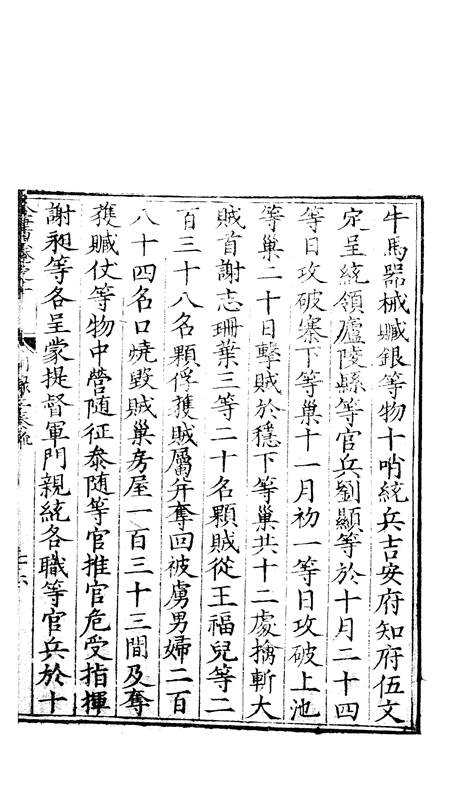 牛馬器械贓銀等物十哨統兵吉安府知府伍文
定呈統領廬陵縣等官兵劉顯等於十月二十四
等日攻破寨下等巢十一月初一等日攻破上池
等巢二十日擊賊於穩下等巢共十二處擒斬大
賊首謝志珊葉三等二十名顆賊從王福兒等二
百三十八名顆俘獲賊屬并奪回被虜男婦二百
八十四名口燒毀賊巢房屋一百三十三間及奪
獲贓仗等物中營隨征泰隨等官推官危受指揮
謝昶等各呈蒙提督軍門親統各職等官兵於十